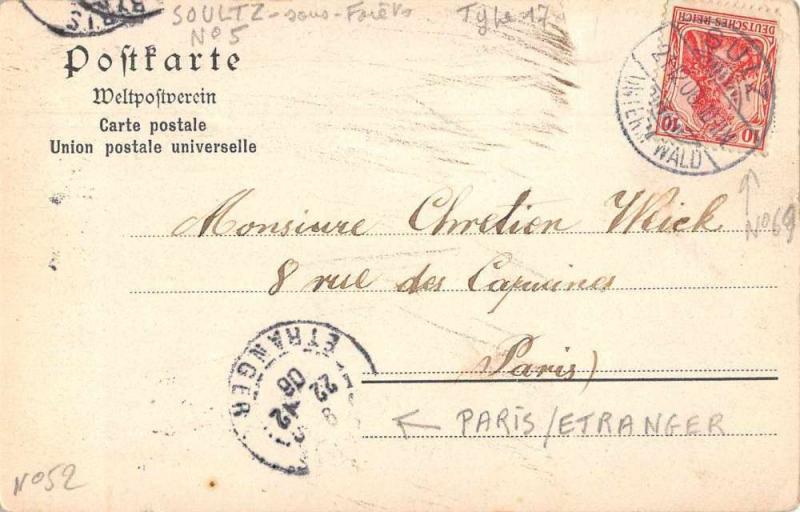 SOULTZ-sous-Forêts
N°5
Type 17
Postkarte
Weltpostverein
Carte postale
Union postale universelle
DEUTSCHES REICH
10 10
SULZ
WALD
N°69
Monsiure Chretien Weick
8 rue des Capucines
Paris)
ETRANGER
22
06
PARIS/ETRANGER
N°52